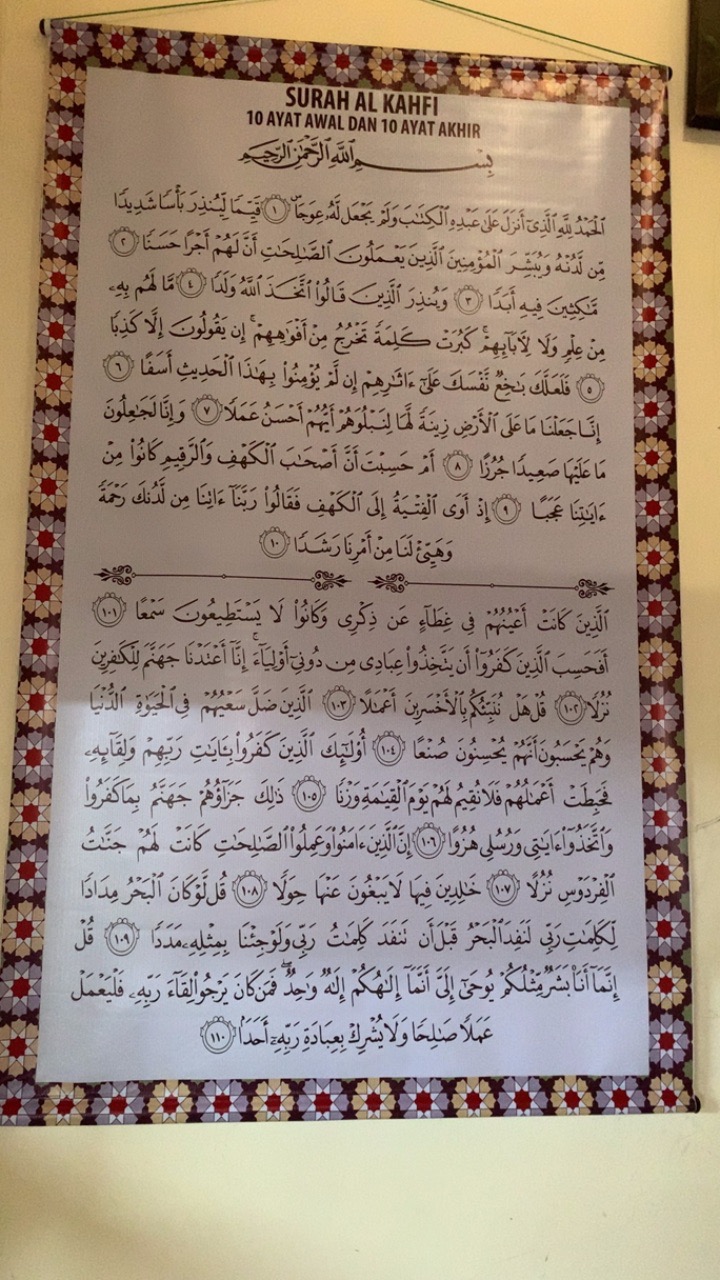 SURAH AL KAHFI
10 AYAT AWAL DAN 10 AYAT AKHIR
بِسْمِ اللَّهِ الرَّحْمَٰنِ الرَّحِيمِ
الْحَمْدُ لِلَّهِ الَّذِي أَنزَلَ عَلَىٰ عَبْدِهِ الْكِتَابَ وَلَمْ يَجْعَل لَّهُ عِوَجَا ۜ ١ قَيِّمًا لِّيُنذِرَ بَأْسًا شَدِيدًا
مِّن لَّدُنْهُ وَيُبَشِّرَ الْمُؤْمِنِينَ الَّذِينَ يَعْمَلُونَ الصَّالِحَاتِ أَنَّ لَهُمْ أَجْرًا حَسَنًا ٢
مَّاكِثِينَ فِيهِ أَبَدًا ٣ وَيُنذِرَ الَّذِينَ قَالُوا اتَّخَذَ اللَّهُ وَلَدًا ٤ مَّا لَهُم بِهِ
مِنْ عِلْمٍ وَلَا لِآبَائِهِمْ ۚ كَبُرَتْ كَلِمَةً تَخْرُجُ مِنْ أَفْوَاهِهِمْ ۚ إِن يَقُولُونَ إِلَّا كَذِبًا
٥ فَلَعَلَّكَ بَاخِعٌ نَّفْسَكَ عَلَىٰ آثَارِهِمْ إِن لَّمْ يُؤْمِنُوا بِهَٰذَا الْحَدِيثِ أَسَفًا ٦
إِنَّا جَعَلْنَا مَا عَلَى الْأَرْضِ زِينَةً لَّهَا لِنَبْلُوَهُمْ أَيُّهُمْ أَحْسَنُ عَمَلًا ٧ وَإِنَّا لَجَاعِلُونَ
مَا عَلَيْهَا صَعِيدًا جُرُزًا ٨ أَمْ حَسِبْتَ أَنَّ أَصْحَابَ الْكَهْفِ وَالرَّقِيمِ كَانُوا مِنْ
آيَاتِنَا عَجَبًا ٩ إِذْ أَوَى الْفِتْيَةُ إِلَى الْكَهْفِ فَقَالُوا رَبَّنَا آتِنَا مِن لَّدُنكَ رَحْمَةً
وَهَيِّئْ لَنَا مِنْ أَمْرِنَا رَشَدًا ١٠
الَّذِينَ كَانَتْ أَعْيُنُهُمْ فِي غِطَاءٍ عَن ذِكْرِي وَكَانُوا لَا يَسْتَطِيعُونَ سَمْعًا ١٠١
أَفَحَسِبَ الَّذِينَ كَفَرُوا أَن يَتَّخِذُوا عِبَادِي مِن دُونِي أَوْلِيَاءَ ۚ إِنَّا أَعْتَدْنَا جَهَنَّمَ لِلْكَافِرِينَ
نُزُلًا ١٠٢ قُلْ هَلْ نُنَبِّئُكُم بِالْأَخْسَرِينَ أَعْمَالًا ١٠٣ الَّذِينَ ضَلَّ سَعْيُهُمْ فِي الْحَيَاةِ الدُّنْيَا
وَهُمْ يَحْسَبُونَ أَنَّهُمْ يُحْسِنُونَ صُنْعًا ١٠٤ أُولَٰئِكَ الَّذِينَ كَفَرُوا بِآيَاتِ رَبِّهِمْ وَلِقَائِهِ
فَحَبِطَتْ أَعْمَالُهُمْ فَلَا نُقِيمُ لَهُمْ يَوْمَ الْقِيَامَةِ وَزْنًا ١٠٥ ذَٰلِكَ جَزَاؤُهُمْ جَهَنَّمُ بِمَا كَفَرُوا
وَاتَّخَذُوا آيَاتِي وَرُسُلِي هُزُوًا ١٠٦ إِنَّ الَّذِينَ آمَنُوا وَعَمِلُوا الصَّالِحَاتِ كَانَتْ لَهُمْ جَنَّاتُ
الْفِرْدَوْسِ نُزُلًا ١٠٧ خَالِدِينَ فِيهَا لَا يَبْغُونَ عَنْهَا حِوَلًا ١٠٨ قُل لَّوْ كَانَ الْبَحْرُ مِدَادًا
لِّكَلِمَاتِ رَبِّي لَنَفِدَ الْبَحْرُ قَبْلَ أَن تَنفَدَ كَلِمَاتُ رَبِّي وَلَوْ جِئْنَا بِمِثْلِهِ مَدَدًا ١٠٩ قُلْ
إِنَّمَا أَنَا بَشَرٌ مِّثْلُكُمْ يُوحَىٰ إِلَيَّ أَنَّمَا إِلَٰهُكُمْ إِلَٰهٌ وَاحِدٌ ۖ فَمَن كَانَ يَرْجُو لِقَاءَ رَبِّهِ فَلْيَعْمَلْ
عَمَلًا صَالِحًا وَلَا يُشْرِكْ بِعِبَادَةِ رَبِّهِ أَحَدًا ١١٠